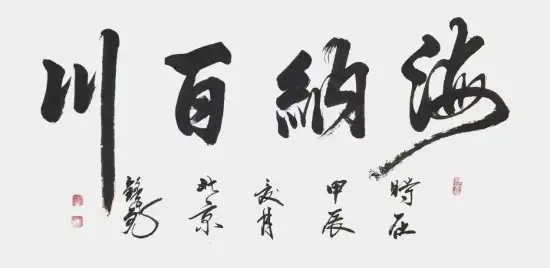 海納百川
時在
甲辰
夏月
北京